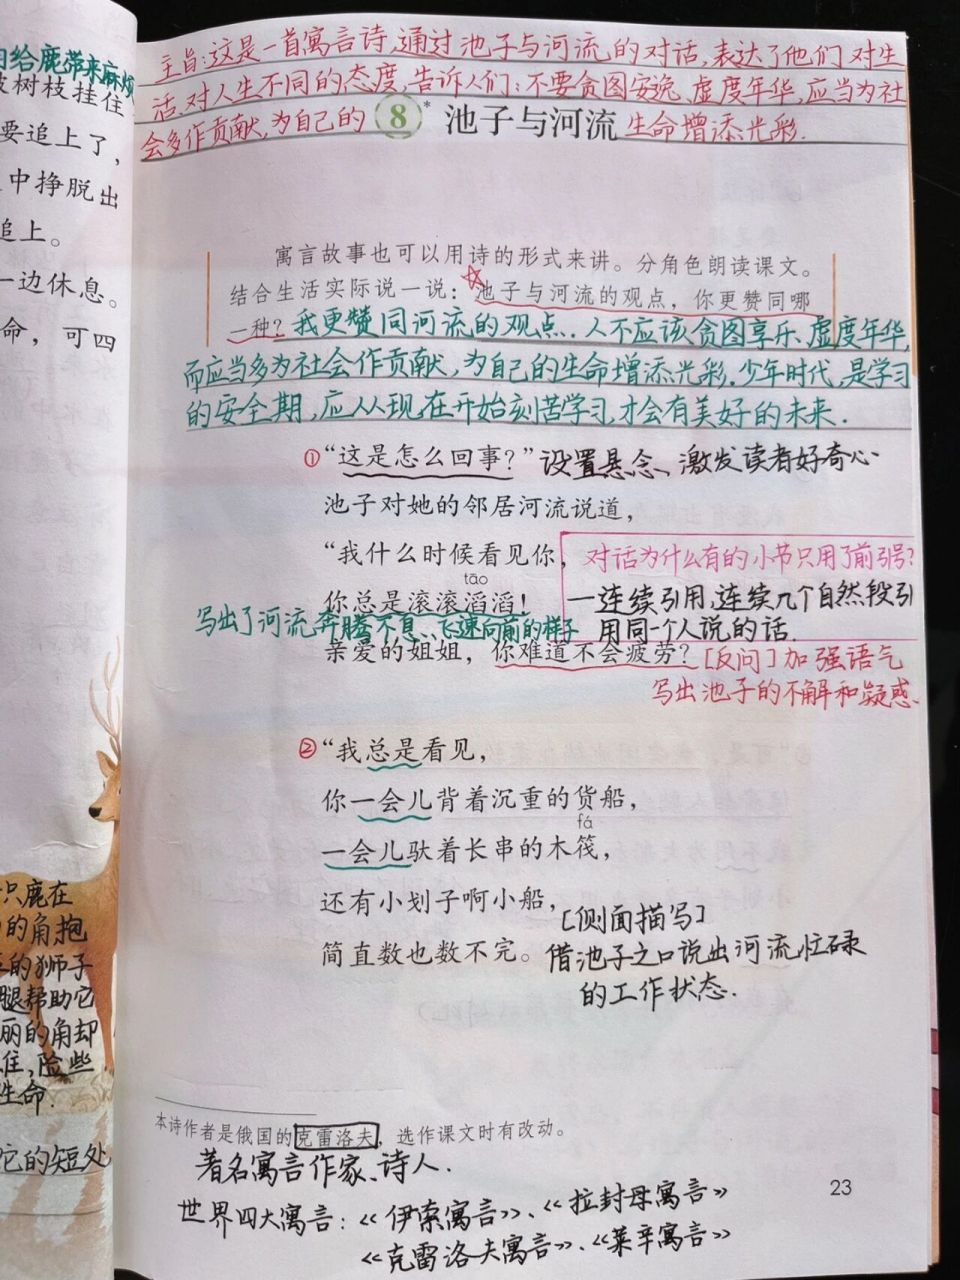 给鹿带来麻烦
树枝挂住
要追上了，
中挣脱出
追上。
一边休息。
命，可四
只鹿在
的角抱
的狮子
腿帮助它
丽的角却
住，险些
生命.
它的短处
主旨:这是一首寓言诗,通过池子与河流的对话,表达了他们对生
活、对人生不同的态度,告诉人们:不要贪图安逸、虚度年华,应当为社
会多作贡献,为自己的生命增添光彩.
8* 池子与河流
寓言故事也可以用诗的形式来讲。分角色朗读课文。
结合生活实际说一说：池子与河流的观点，你更赞同哪
一种？我更赞同河流的观点..人不应该贪图享乐、虚度年华,
而应当多为社会作贡献,为自己的生命增添光彩.少年时代,是学习
的安全期,应从现在开始刻苦学习,才会有美好的未来.
①“这是怎么回事？”设置悬念、激发读者好奇心
池子对她的邻居河流说道，
“我什么时候看见你，
对话为什么有的小节只用了前引号?
tāo
你总是滚滚滔滔！
—连续引用,连续几个自然段引
用同一个人说的话.
写出了河流奔腾不息、飞速向前的样子
亲爱的姐姐，你难道不会疲劳？[反问]加强语气
写出池子的不解和疑惑.
②“我总是看见，
你一会儿背着沉重的货船，
fá
一会儿驮着长串的木筏，
还有小划子啊小船，
[侧面描写]
简直数也数不完。借池子之口说出河流忙碌
的工作状态.
本诗作者是俄国的克雷洛夫，选作课文时有改动。
著名寓言作家、诗人.
23
世界四大寓言:《伊索寓言》、《拉封丹寓言》
《克雷洛夫寓言》、《莱辛寓言》